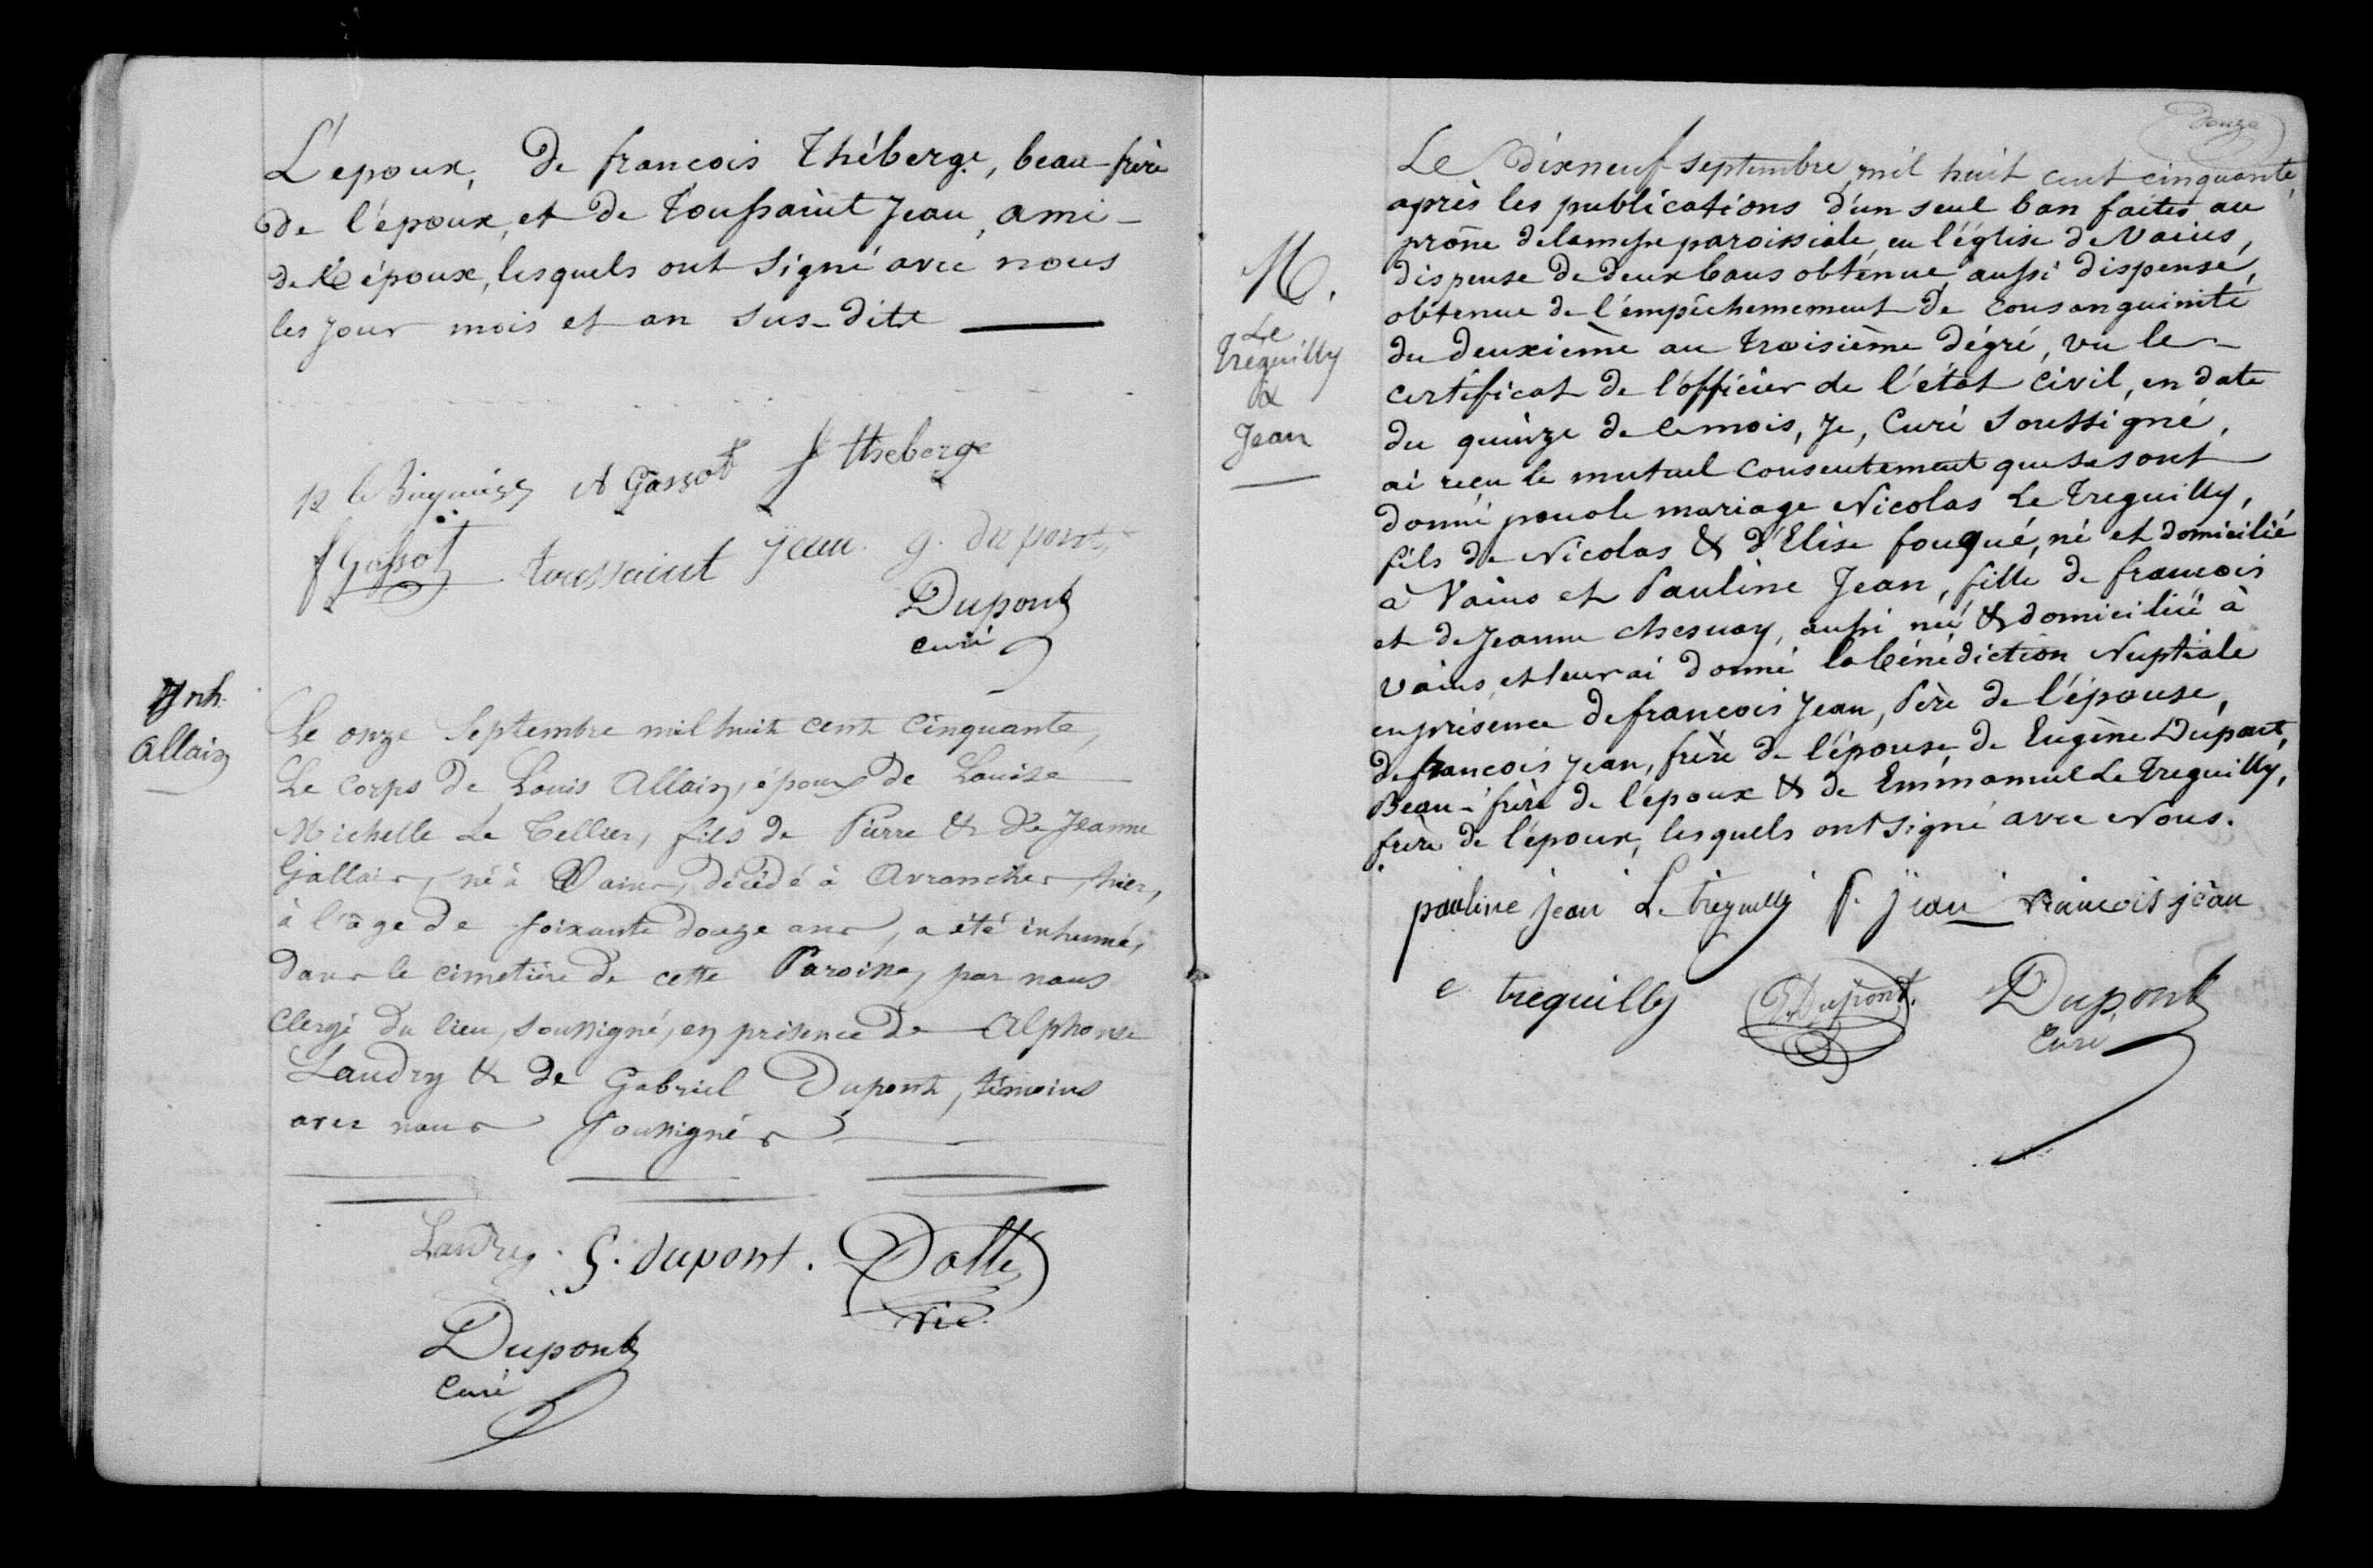 L'epoux, de francois Théberge, beau-frère
de l'époux, et de Toussaint Jean, ami-
de l'époux, lesquels ont signé avec nous
les jour mois et an sus-dits
A Gassot f theberge
f gassot toussaint jean. g. dupont
Dupont
curé
Inh.
Allain
Le onze Septembre mil huit cent cinquante,
Le corps de Louis Allain, époux de Louise
Michelle Le Tellier, fils de Pierre & de Jeanne
Gallais, né à Vains, décédé à Avranches, hier,
à l'âge de soixante douze ans, a été inhumé,
dans le cimetière de cette Paroisse, par nous
Clergé du lieu, soussigné, en présence de Alphonse
Landry & de Gabriel Dupont, témoins
avec nous soussignés
Landry. G. dupont. Dalle
Vic.
Dupont
Curé
douze
M.
Le
Treguilly
&
Jean
Le dixneuf septembre mil huit cent cinquante,
après les publications d'un seul ban faites au
prône de la messe paroissiale en l'église de Vains,
dispense de deux bans obtenue aussi dispense,
obtenue de l'empêchemement de consanguinité
du deuxième au troisième dégré, vu le
certificat de l'officier de l'état civil, en date
du quinze de ce mois, Je, Curé soussigné,
ai reçu le mutuel consentement que se sont
donné pour le mariage Nicolas Le Treguilly,
fils de Nicolas & d'Elise fouqué, né et domicilié
à Vains et Pauline Jean, fille de francois
et de Jeanne chesnay, aussi née & domiciliée à
Vains, et leur ai donné la bénédiction Nuptiale
en présence de francois Jean, Père de l'épouse,
de francois Jean, frère de l'épouse, de Eugène Dupont,
Beau-frère de l'époux & de Emmanuel Le Treguilly,
frère de l'époux, lesquels ont signé avec Nous.
pauline jean Le treguilly f. jean francois jean
e treguilly E. Dupont. Dupont
Curé